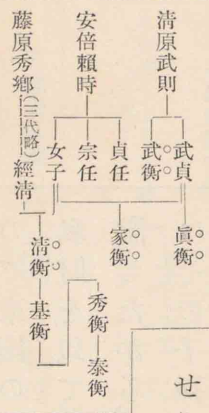 清原武則
武貞
武衡
眞衡
家衡
安倍賴時
貞任
宗任
女子
藤原秀鄕(三代略)經清
清衡
基衡
秀衡
泰衡
せ